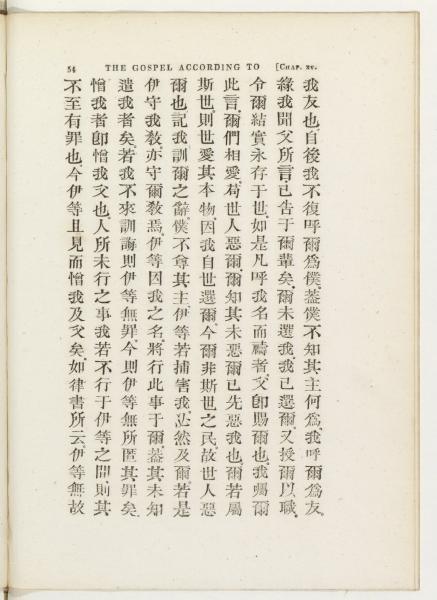 54 THE GOSPEL ACCORDING TO [CHAP. XV.
我友也自後我不復呼爾爲僕蓋僕不知其主何爲我呼爾爲友
緣我聞父所言已告于爾輩矣爾未選我我已選爾又授爾以職
令爾結實永存于世如是凡呼我名而禱者父卽賜爾也我囑爾
此言爾們相愛苟世人惡爾爾知其未惡爾已先惡我也爾若屬
斯世則世愛其本物因我自世選爾今爾非斯世之民故世人惡
爾也記我訓爾之辭僕不尊其主伊等若捕害我茫然及爾若是
伊守我敎亦守爾敎焉伊等因我之名將行此事于爾蓋其未知
遣我者矣若我不來訓誨則伊等無罪今則伊等無所匿其罪矣
憎我者卽憎我父也人所未行之事我若不行于伊等之間則其
不至有罪也今伊等且見而憎我及父矣如律書所云伊等無故